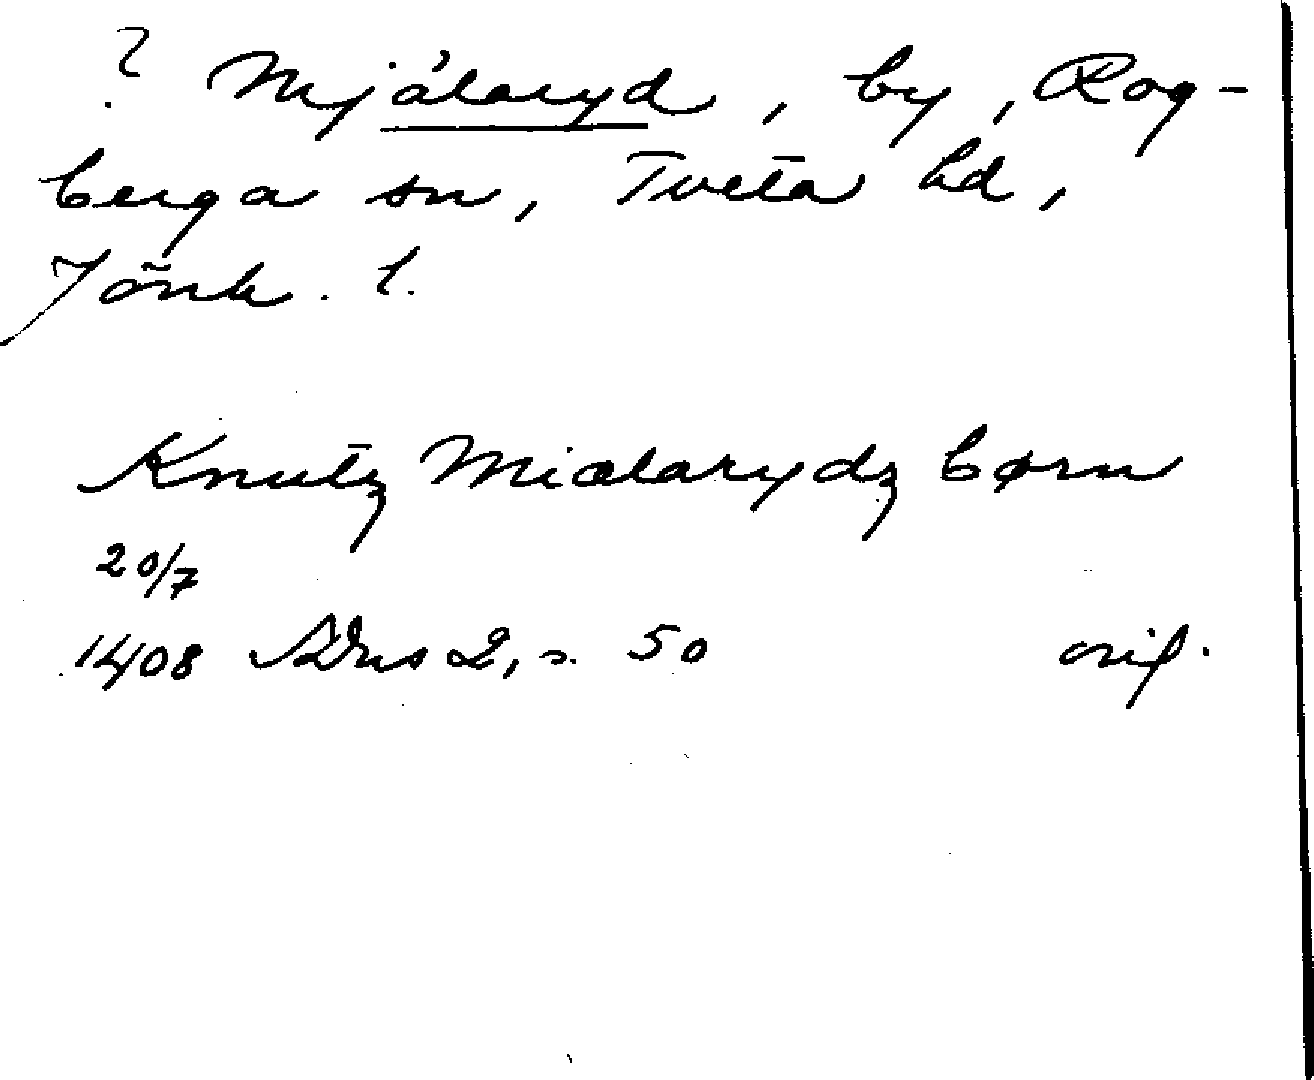 ? Mjálaryd, by, Rog-
berga sn, Tveta hd,
Jönk. l.
Knutz Mialarydz børn
20/7
1408 SDns 2, s. 50 orig.